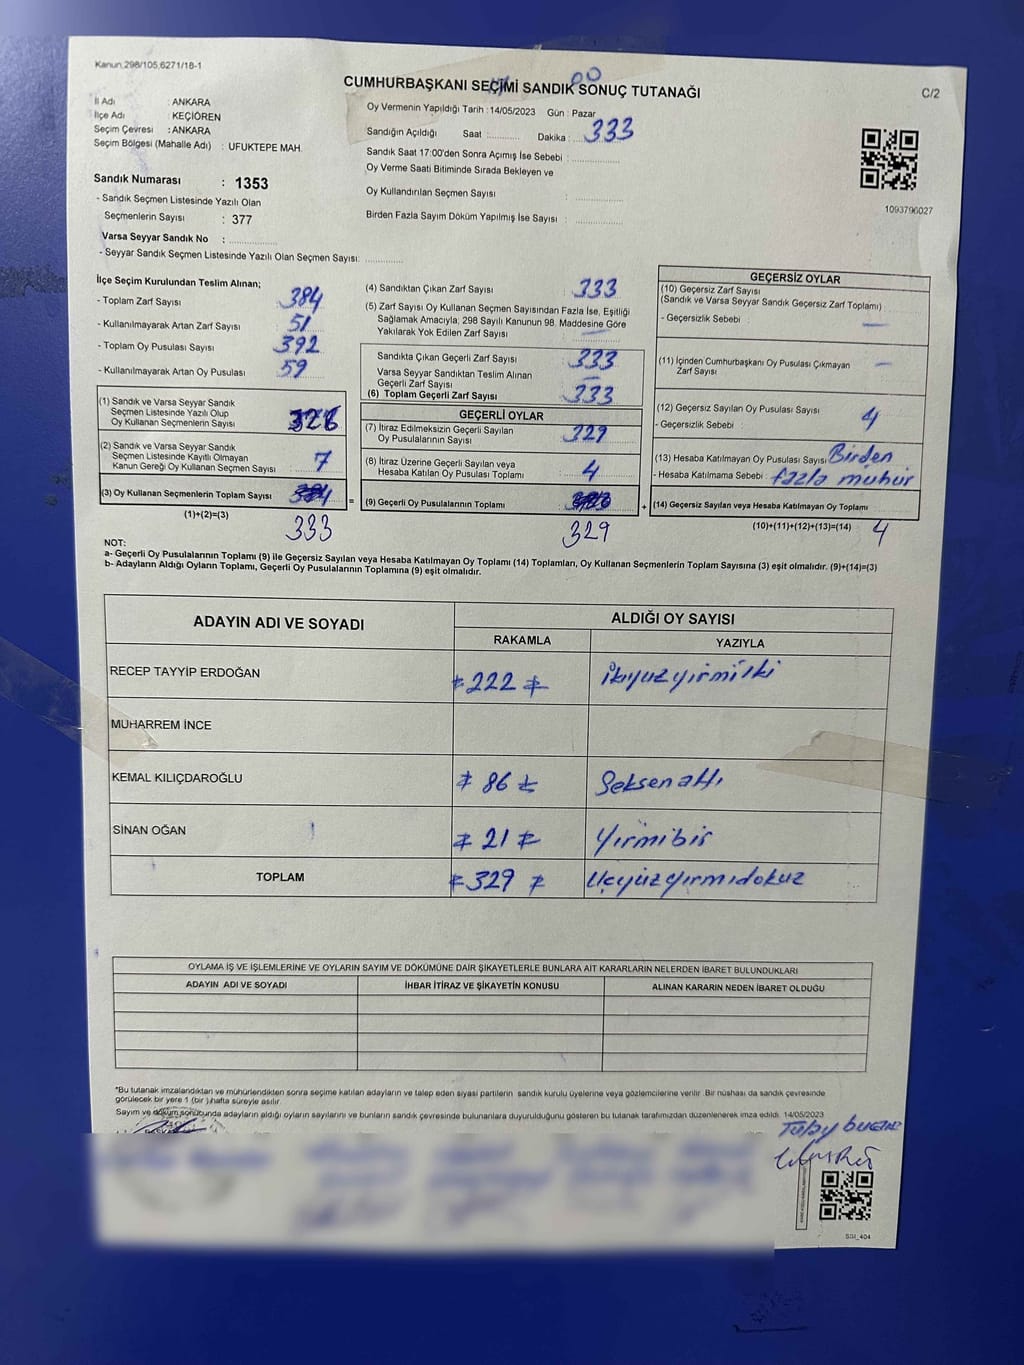 Kanun,298/105,6271/18-1
CUMHURBAŞKANI SEÇİMİ SANDIK SONUÇ TUTANAĞI
C/2
İl Adı : ANKARA
İlçe Adı : KEÇİÖREN
Seçim Çevresi : ANKARA
Seçim Bölgesi (Mahalle Adı) : UFUKTEPE MAH.
Oy Vermenin Yapıldığı Tarih : 14/05/2023 Gün : Pazar
Sandığın Açıldığı Saat :.......... Dakika : 333
Sandık Saat 17:00'den Sonra Açımış İse Sebebi : ................
Oy Verme Saati Bitiminde Sırada Bekleyen ve
Oy Kullandırılan Seçmen Sayısı : ................
Birden Fazla Sayım Döküm Yapılmış İse Sayısı : ................
1093796027
Sandık Numarası : 1353
- Sandık Seçmen Listesinde Yazılı Olan
Seçmenlerin Sayısı : 377
Varsa Seyyar Sandık No : ................
- Seyyar Sandık Seçmen Listesinde Yazılı Olan Seçmen Sayısı: ............
İlçe Seçim Kurulundan Teslim Alınan;
- Toplam Zarf Sayısı : 384
- Kullanılmayarak Artan Zarf Sayısı : 51
- Toplam Oy Pusulası Sayısı : 392
- Kullanılmayarak Artan Oy Pusulası : 59
(1) Sandık ve Varsa Seyyar Sandık
Seçmen Listesinde Yazılı Olup
Oy Kullanan Seçmenlerin Sayısı : 326
(2) Sandık ve Varsa Seyyar Sandık
Seçmen Listesinde Kayıtlı Olmayan
Kanun Gereği Oy Kullanan Seçmen Sayısı : 7
(3) Oy Kullanan Seçmenlerin Toplam Sayısı
(1)+(2)=(3) 333
(4) Sandıktan Çıkan Zarf Sayısı : 333
(5) Zarf Sayısı Oy Kullanan Seçmen Sayısından Fazla İse, Eşitliği
Sağlamak Amacıyla; 298 Sayılı Kanunun 98. Maddesine Göre
Yakılarak Yok Edilen Zarf Sayısı : —
Sandıkta Çıkan Geçerli Zarf Sayısı : 333
Varsa Seyyar Sandıktan Teslim Alınan
Geçerli Zarf Sayısı : —
(6) Toplam Geçerli Zarf Sayısı : 333
GEÇERLİ OYLAR
(7) İtiraz Edilmeksizin Geçerli Sayılan
Oy Pusulalarının Sayısı : 329
(8) İtiraz Üzerine Geçerli Sayılan veya
Hesaba Katılan Oy Pusulası Toplamı : 4
= (9) Geçerli Oy Pusulalarının Toplamı
329
GEÇERSİZ OYLAR
(10) Geçersiz Zarf Sayısı
(Sandık ve Varsa Seyyar Sandık Geçersiz Zarf Toplamı)
- Geçersizlik Sebebi : —
(11) İçinden Cumhurbaşkanı Oy Pusulası Çıkmayan
Zarf Sayısı : —
(12) Geçersiz Sayılan Oy Pusulası Sayısı : 4
- Geçersizlik Sebebi :
(13) Hesaba Katılmayan Oy Pusulası Sayısı : Birden
- Hesaba Katılmama Sebebi : fazla mühür
+ (14) Geçersiz Sayılan veya Hesaba Katılmayan Oy Toplamı
(10)+(11)+(12)+(13)=(14) 4
NOT:
a- Geçerli Oy Pusulalarının Toplamı (9) ile Geçersiz Sayılan veya Hesaba Katılmayan Oy Toplamı (14) Toplamları, Oy Kullanan Seçmenlerin Toplam Sayısına (3) eşit olmalıdır. (9)+(14)=(3)
b- Adayların Aldığı Oyların Toplamı, Geçerli Oy Pusulalarının Toplamına (9) eşit olmalıdır.
ADAYIN ADI VE SOYADI ALDIĞI OY SAYISI
RAKAMLA YAZIYLA
RECEP TAYYİP ERDOĞAN 222 İkiyüzyirmiİki
MUHARREM İNCE
KEMAL KILIÇDAROĞLU 86 Seksenaltı
SİNAN OĞAN 21 Yirmibir
TOPLAM 329 Üçyüzyirmidokuz
OYLAMA İŞ VE İŞLEMLERİNE VE OYLARIN SAYIM VE DÖKÜMÜNE DAİR ŞİKAYETLERLE BUNLARA AİT KARARLARIN NELERDEN İBARET BULUNDUKLARI
ADAYIN ADI VE SOYADI İHBAR İTİRAZ VE ŞİKAYETİN KONUSU ALINAN KARARIN NEDEN İBARET OLDUĞU
*Bu tutanak imzalandıktan ve mühürlendikten sonra seçime katılan adayların ve talep eden siyasi partilerin sandık kurulu üyelerine veya gözlemcilerine verilir. Bir nüshası da sandık çevresinde
görülecek bir yere 1 (bir )hafta süreyle asılır.
Sayım ve döküm sonucunda adayların aldığı oyların sayılarını ve bunların sandık çevresinde bulunanlara duyurulduğunu gösteren bu tutanak tarafımızdan düzenlenerek imza edildi. 14/05/2023